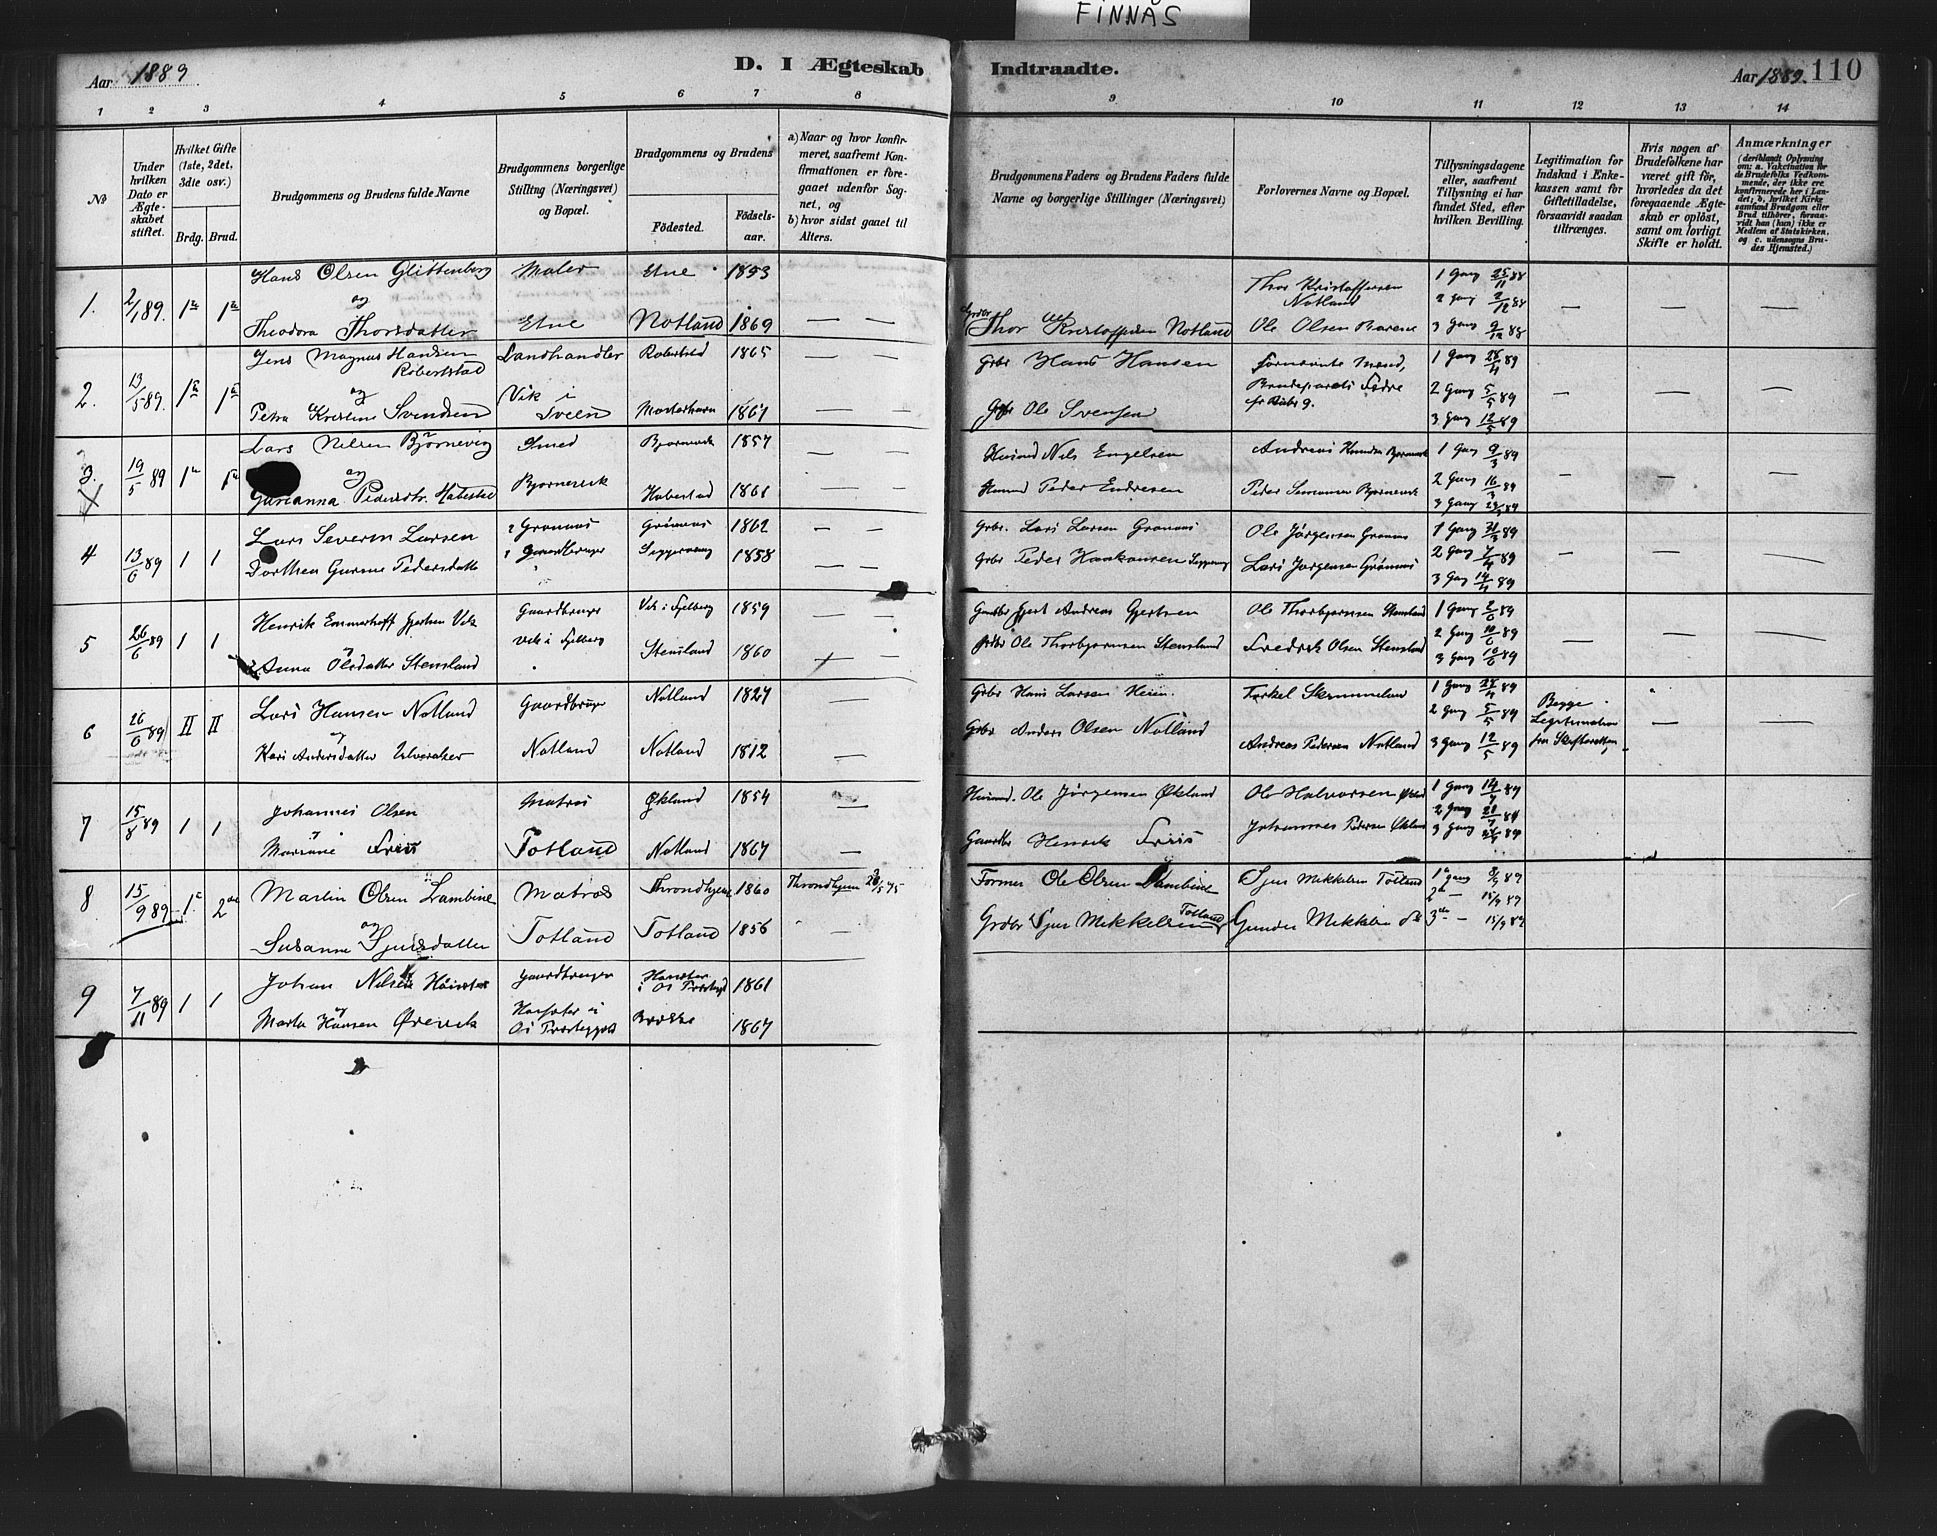 FINNÅS
Aar 1889.
D. I Ægteskab Indtraadte.
Aar 1889. 110
1 2 3 4 5 6 7 8 9 10 11 12 13 14
No
Under hvilken Dato er Ægteskabet stiftet.
Hvilket Gifte (1ste, 2det, 3die osv.)
Brdg. Brud.
Brudgommens og Brudens fulde Navne
Brudgommens borgerlige Stilling (Næringsvei) og Bopæl.
Brudgommens og Brudens
Födested.
Födselsaar.
a) Naar og hvor konfirmeret, saafremt Konfirmationen er foregaaet udenfor Sognet, og
b) hvor sidst gaaet til Alters.
Brudgommens Faders og Brudens Faders fulde Navne og borgerlige Stillinger (Næringsvei)
Forlovernes Navne og Bopæl.
Tillysningsdagene eller, saafremt Tillysning ei har fundet Sted, efter hvilken Bevilling.
Legitimation for Indskud i Enkekassen samt for Giftetilladelse, forsaavidt saadan tiltrænges.
Hvis nogen af Brudefolkene har været gift før, hvorledes da det foregaaende Ægteskab er oplöst, samt om lovligt Skifte er holdt.
Anmærkninger
(deriblandt Oplysning om: a. Vakcination for de Brudefolks Vedkommende, der ikke ere konfirmerede her i Landet; b. hvilket Kirkesamfund Brudgom eller Brud tilhörer, forsaavidt han (hun) ikke er Medlem af Statskirken, og c. udensogns Brudes Hjemsted.)
1. 2/1 89. 1ste 1ste Hans Olsen Glittenberg Maler Etne 1853
og
Theodora Thorsdatter Etne Notland 1869 — —
Thor Kristoffersen Notland
Grdbr Thor Kristoffersen Notland Ole Olsen
1 Gang 25/11 88
2 Gang 2/12 88
3 Gang 9/12 88
2. 13/5 89. Jens Magnus Hansen Robertstad Landhandler 1865 — —
og
Petra Kristine Svendsen Vik i Sveen Mosterhavn 1867 — —
Grbr Hans Hansen
Grbr Ole Svensen
Brudeparets Fædre
1 Gang 28/4 89
2 Gang 5/5 89
3 Gang 12/5 89
3. 19/5 89 Lars Nilsen Björnevig Smed 1857 — —
og
Gurianna Pedersdtr. Habestad Bjornevik Habestad 1861 — —
Husmd Nils Engelsen
Husmd Peder Endresen
1 Gang 9/3 89
2 Gang 16/3 89
3 Gang
4 13/6 89 1 1 Lars Severin Larsen Gronnas 1862 — —
Dorthea Gurine Pedersdatter 1858 — —
Grbr. Lars Larsen Ole Jörgensen
Grbr Peder Haakonsen Lars Jorgensen
1 Gang 31/3 89
2 Gang 7/4 89
3 Gang 14/4 89
5 26/6 89 1 1 Henrik Emmerhoff Gjertsen Vik Gaardbruger Vik i Fjelberg 1859
og
Anna Olsdatter Stensland Vik i Fjelberg Stensland 1860
Gjert Andreas Gjertsen Ole Thorbjornsen Stensland
Grdbr Ole Thorbjornsen Stensland Fredrik Olsen Stensland
1 Gang 2/6 89
2 Gang 10/6 89
3 Gang
6 26/6 89 II II Lars Hansen Notland Gaardbruger Notland 1827 —
og
Kari Andersdatter Ulveraker Notland Notland 1812 —
Grbr Hans Larsen Torkel
Grbr Anders Olsen Notland Andreas Pedersen Notland
1 Gang 28/4 89
2 Gang 5/5 89
3 Gang 12/5 89
Begge Legitimation fra Skifteretten
7 15/8 89 1 1 Johannes Olsen Matros Økland 1854 —
og
Mariane Friis Totland Notland 1867 —
Husmd. Ole Jörgensen Økland Ole Halvorsen Økland
Gaardbr Henrik Friis Johannes Pedersen Økland
1 Gang 14/7 89
2 Gang 21/7 89
3 Gang
8 15/9 89 2 Martin Olsen Lambine Matros Throndhjem 1860 Throndhjem
og
Susanne Sjursdatter Totland Totland 1856 —
Former Ole Olsen Lambine Sjur Mikkelsen Totland
Grdbr Sjur Mikkelsen Totland Gunder Mikkelsen
1 Gang 8/9 89
2 — 15/9 89
3 — 15/9 89
9 7/11 89 1 1 Johan Nilsen Gaardbruger 1861
og
Marta Hansen Ørevik Os Præstegjeld 1867